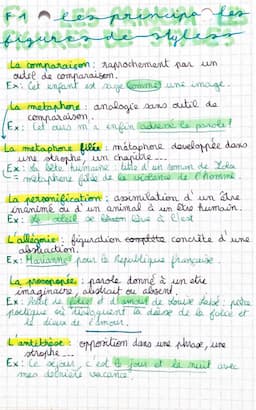 F1 les principales
figures de styles
La comparaison : rapprochement par un
outil de comparaison.
Ex : Cet enfant est sage comme une image.
La métaphore : analogie sans outil de
comparaison.
Ex : Cet ours m'a enfin adressé la parole !
La métaphore filée : métaphore développée dans
une strophe, un chapitre...
Ex : La bête humaine : titre d'un roman de Zola
métaphore filée de la violence de l'homme
La personnification : assimilation d'un être
inanimé ou d'un animal à un être humain.
Ex : Le soleil se lève à l'est
L'allégorie : figuration complète concrète d'une
abstraction.
Ex : Marianne pour la République française.
La prosopopée : parole donné à un être
imaginaire, abstrait ou absent.
Ex : Débat de folie et d'amour de Louise Labé :
poétique où dialoguent la déesse de la folie et
le dieux de l'amour.
L'antithèse : opposition dans une phrase, une
strophe...
Ex : Ce séjour, c'est le jour et la nuit avec
mes dernière vacance